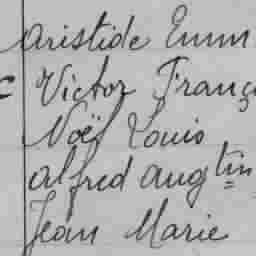 Aristide Emm
Victor Franç
Noël Louis
Alfred Augtin
Jean Marie